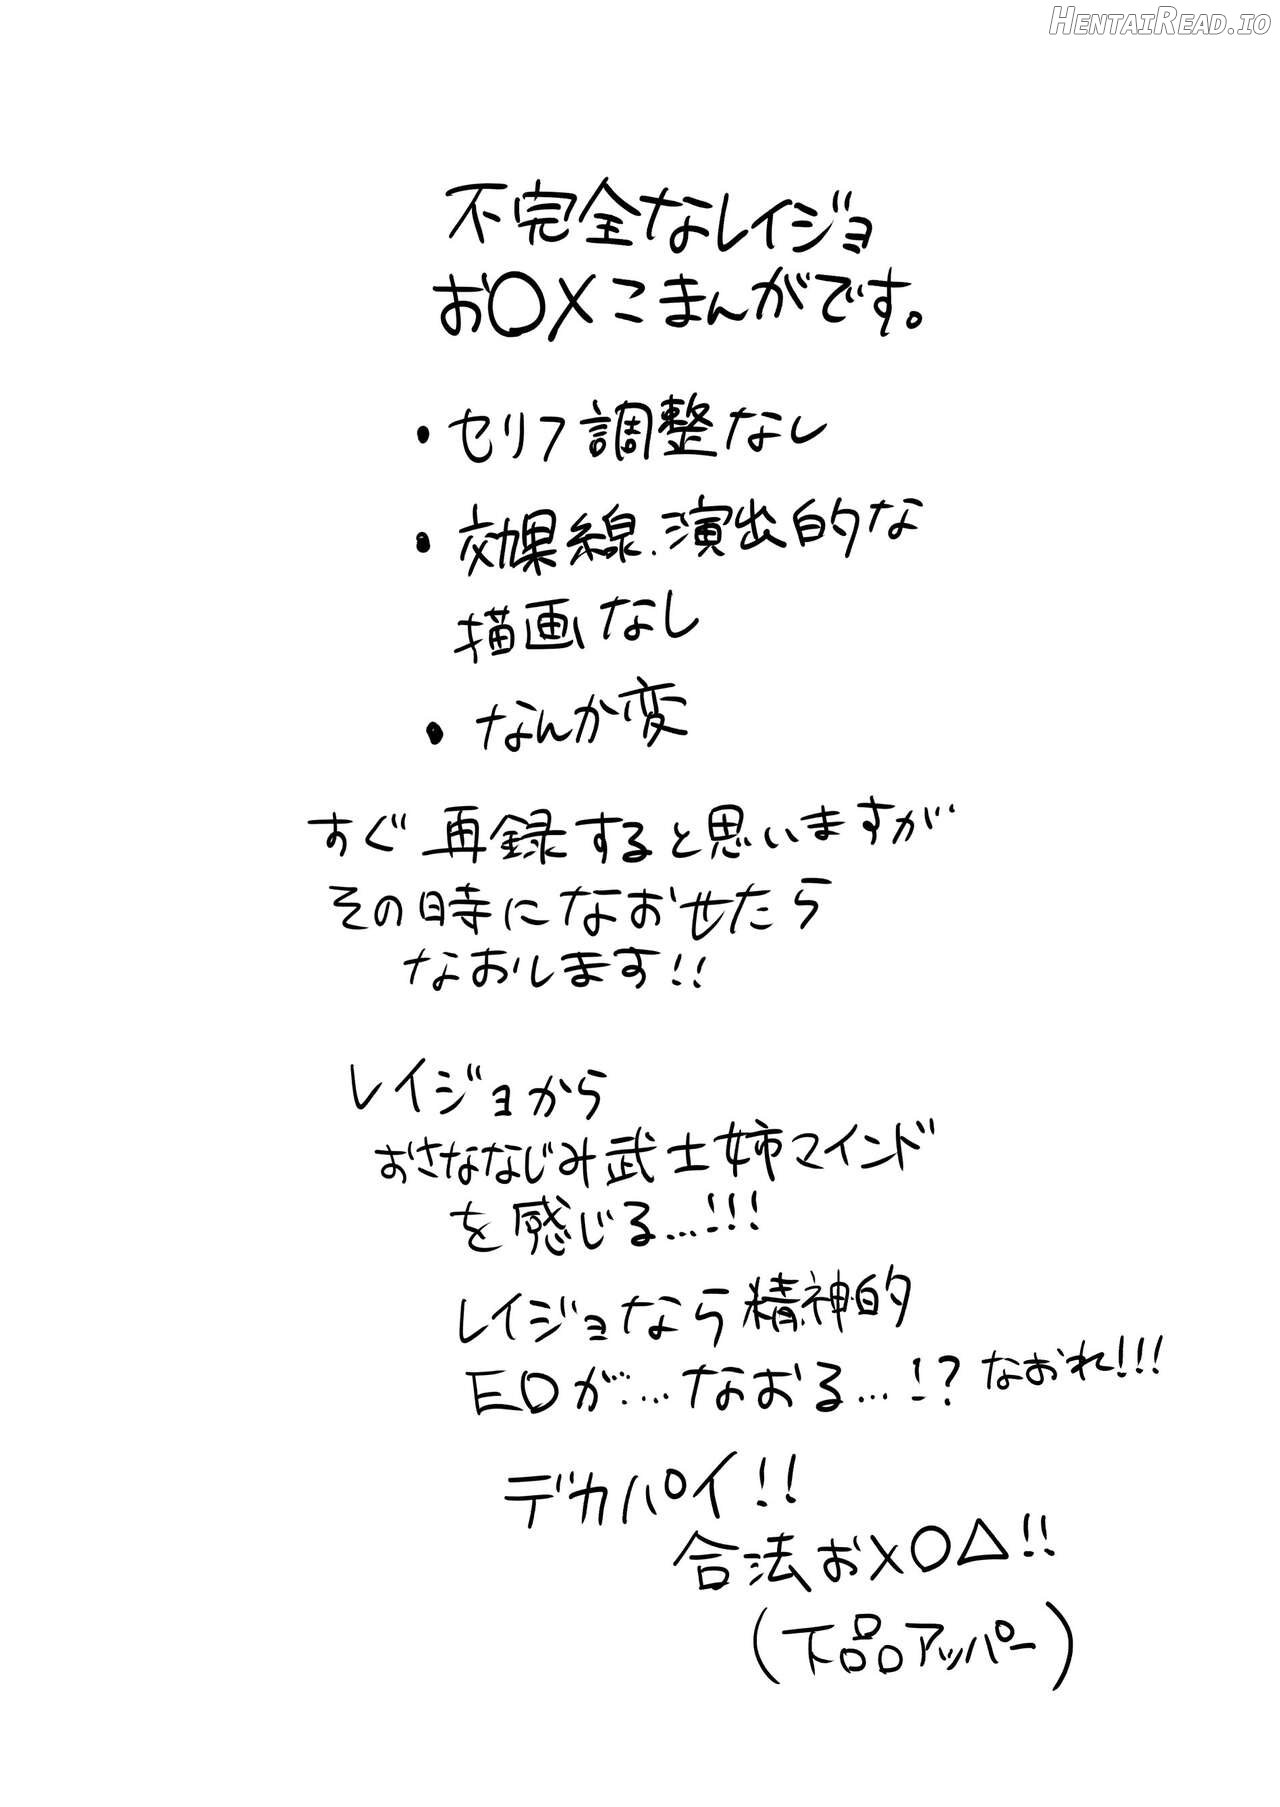 HENTAIREAD.IO
不完全なレイジョ
お〇✕こまんがです。
・セリフ調整なし
・効果線、演出的な
描画なし
・なんか変
すぐ再録すると思いますが
その時になおせたら
なおします!!
レイジョから
おさななじみ武士姉マインド
を感じる...!!!
レイジョなら精神的
EDが……なおる...!? なおれ!!!
デカパイ!!
合法お✕〇△!!
(下品アッパー)